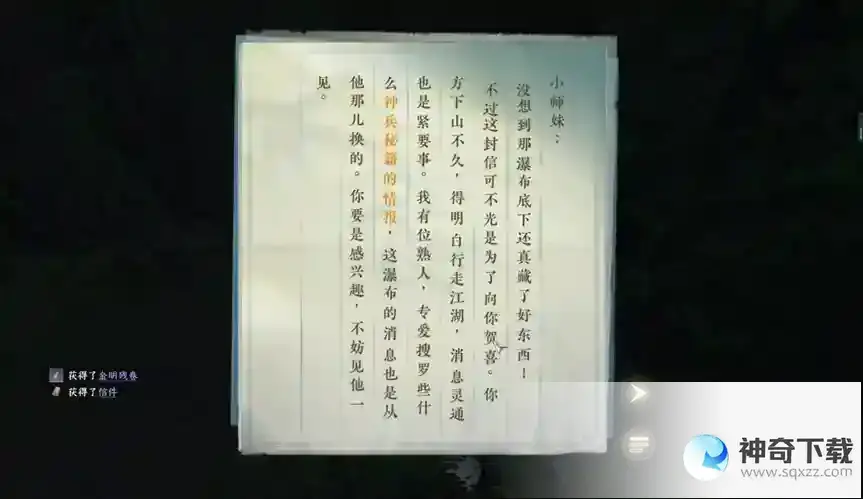 小师妹：
没想到那瀑布底下还真藏了好东西！
不过这封信可不光是为了向你贺喜。你
方下山不久，得明白行走江湖，消息灵通
也是紧要事。我有位熟人，专爱搜罗些什
么神兵秘籍的情报，这瀑布的消息也是从
他那儿换的。你要是感兴趣，不妨见他一
见。
获得了金明残卷
获得了信件
神奇下载
www.sqxzz.com